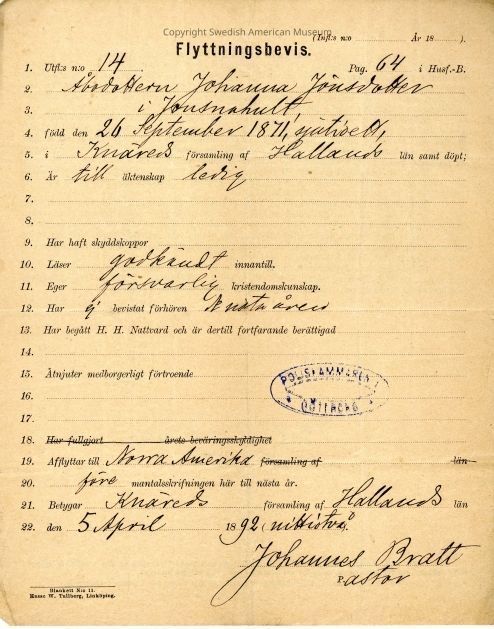 Copyright Swedish American Museum
(Infl:s n:o År 18 ).
Flyttningsbevis.
1. Utfl:s n:o 14 Pag. 64 i Husf.-B.
2. Åbodottern Johanna Jönsdotter
3. i Jonsnahult,
4. född den 26 September 1871, sjutioett,
5. i Knäreds församling af Hallands län samt döpt;
6. Är till äktenskap ledig
7.
8.
9. Har haft skyddskoppor
10. Läser godkändt innantill.
11. Eger försvarlig kristendomskunskap.
12. Har ej bevistat förhören sista åren
13. Har begått H. H. Nattvard och är dertill fortfarande berättigad
14.
15. Åtnjuter medborgerligt förtroende
POLISKAMMAREN
GÖTEBORG
16.
17.
18. Har fullgjort årets beväringsskyldighet
19. Afflyttar till Norra Amerika församling af län
20. före mantalsskrifningen här till nästa år.
21. Betygar Knäreds församling af Hallands län
22. den 5 April 1892, nittitvå
Johannes Bratt
Pastor
Blankett N:o 11.
Kusse W. Tullberg, Linköping.